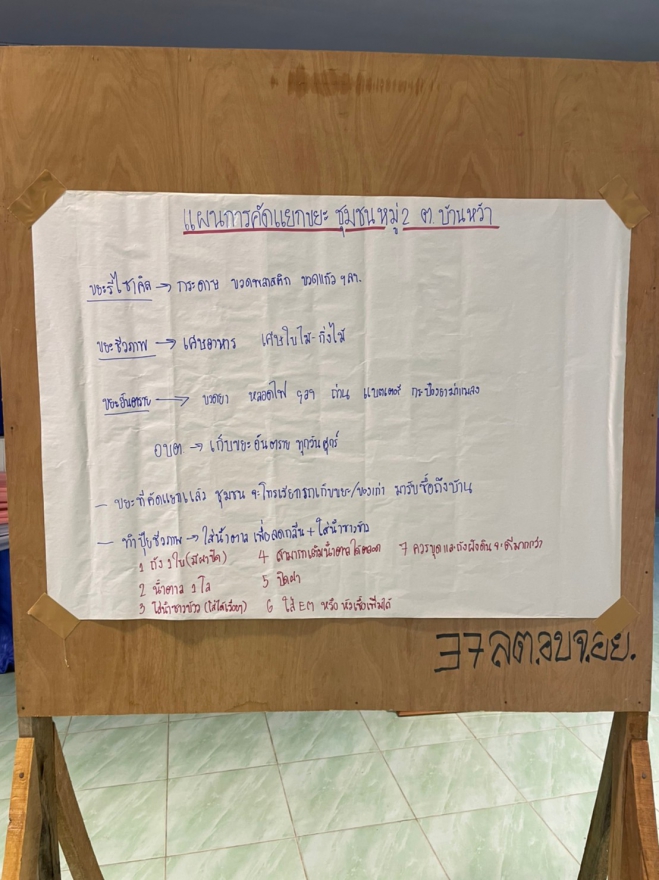 แผนการคัดแยกขยะ ชุมชนหมู่ 2 ต.บ้านหว้า
ขยะรีไซเคิล → กระดาษ ขวดพลาสติก ขวดแก้ว ฯลฯ.
ขยะชีวภาพ → เศษอาหาร เศษใบไม้-กิ่งไม้
ขยะอันตราย → ขวดยา หลอดไฟ ถ่าน แบตเตอรี่ กระป๋องยาฆ่าแมลง
อบต → เก็บขยะอันตราย ทุกวันศุกร์
- ขยะที่คัดแยกแล้ว ชุมชน จะโทรเรียกรถเก็บขยะ/ของเก่า มารับซื้อถึงบ้าน
- ทำปุ๋ยชีวภาพ → ใส่น้ำตาล เพื่อลดกลิ่น + ใส่น้ำซาวข้าว
1 ถัง 1 ใบ (มีฝาปิด) 4 สามารถเติมน้ำตาลได้ตลอด 7 ควรขุดและถังฝังดิน จะดีมากกว่า
2 น้ำตาล 1 โล 5 ปิดฝา
3 ใส่น้ำซาวข้าว (ใส่ได้เรื่อยๆ) 6 ใส่ EM หรือ หัวเชื้อเพิ่มได้
37 สต.อบจ.อย.